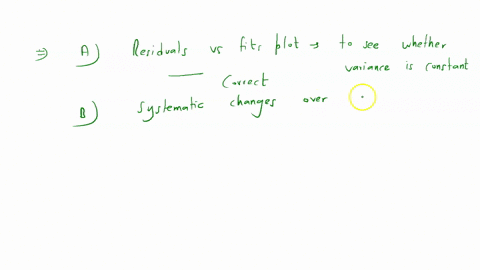 ⇒ A) Residuals vs fits plot → to see whether
variance is constant
correct
B) systematic changes over